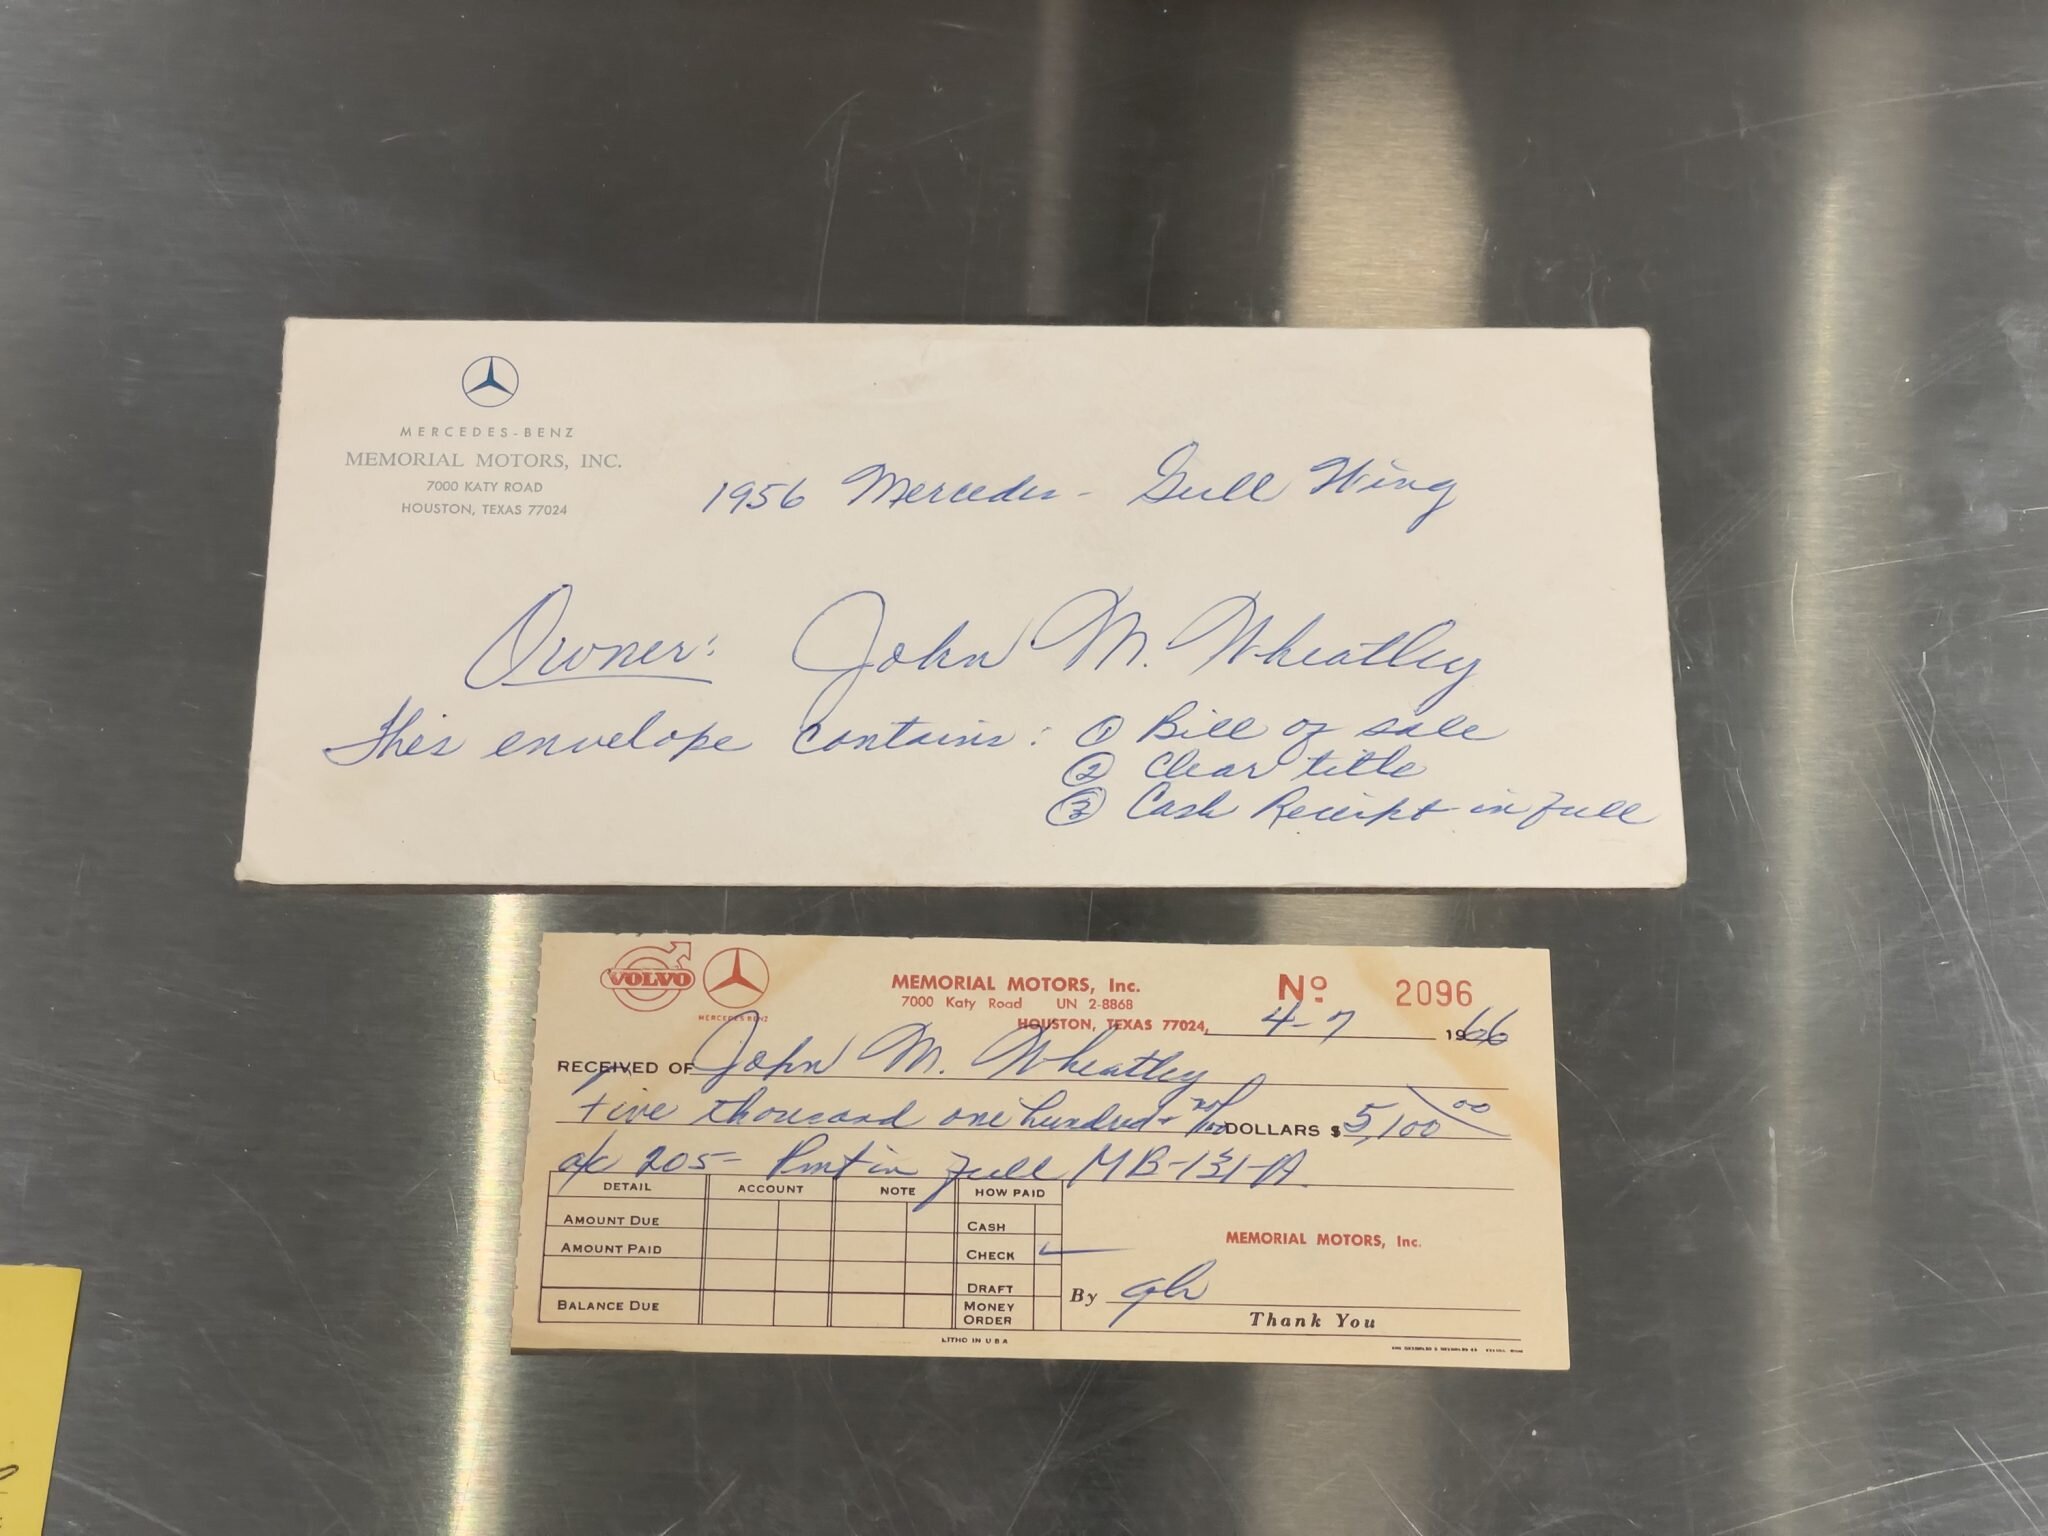 MERCEDES-BENZ
MEMORIAL MOTORS, INC.
7000 KATY ROAD
HOUSTON, TEXAS 77024
1956 Mercedes - Gull Wing
Owner: John M. Wheatley
This envelope contains: ① Bill of sale
② Clear title
③ Cash Receipt in full
VOLVO
MERCEDES BENZ
MEMORIAL MOTORS, Inc.
7000 Katy Road UN 2-8868
HOUSTON, TEXAS 77024, 4-7 1966
Nº 2096
RECEIVED OF John M. Wheatley
Five thousand one hundred + no/100 DOLLARS $ 5,100 00
a/c 205- Pmt in full MB-131-A
DETAIL ACCOUNT NOTE HOW PAID
AMOUNT DUE CASH
AMOUNT PAID CHECK
DRAFT
BALANCE DUE MONEY ORDER
MEMORIAL MOTORS, Inc.
By
Thank You
LITHO IN U S A